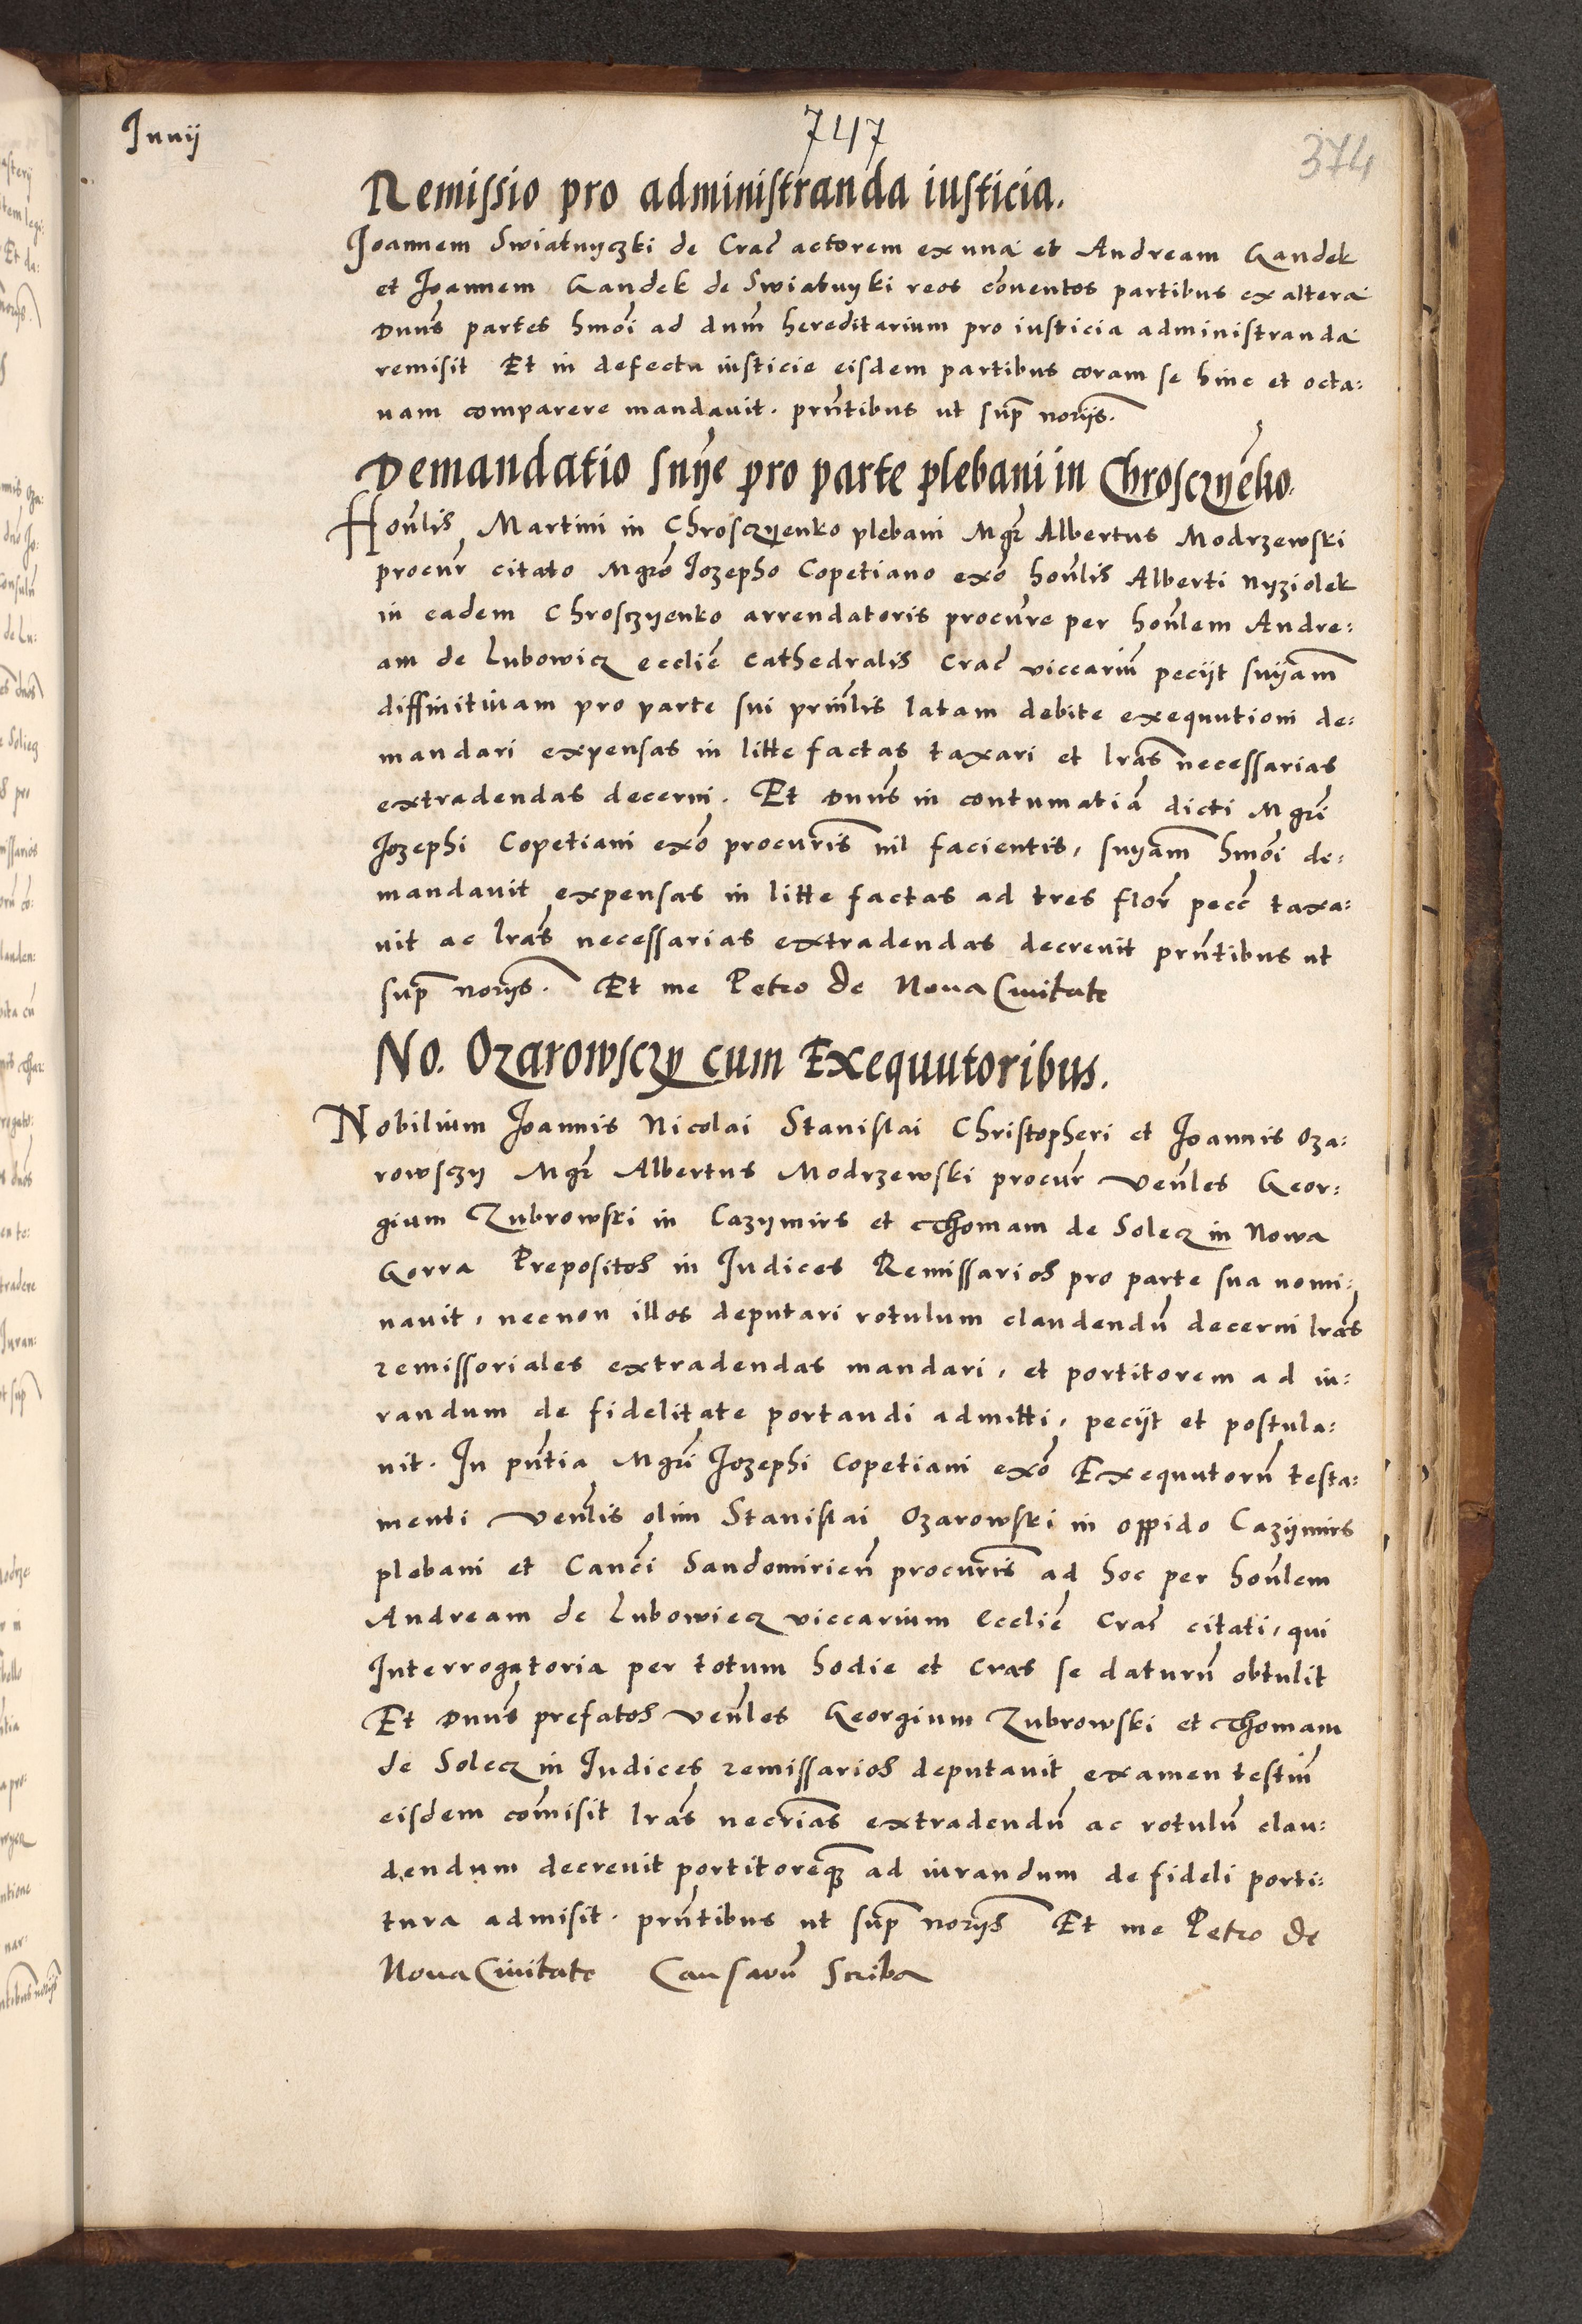 Junij
747
374
Remissio pro administranda iusticia.
Joannem Swiatnyczki de Crac̄ actorem ex una et Andream Gandek
et Joannem Gandek de Swiatnyki reos cōventos partibus ex altera
Dnūs partes hmōi ad dnūm hereditarium pro iusticia administranda
remisit Et in defectu iusticie eisdem partibus coram se hinc et octa:
vam comparere mandavit. pn̄tibus ut sup̄ norijs.
Demandatio sn̄ije pro parte plebani in Chrosczyēko.
Honl̄is Martini in Chrosczyenko plebani Mgr̄ Albertus Modrzewski
procur̄ citato Mgrō Jozepho Copetiano exō honl̄is Alberti Nyziolek
in eadem Chrosczyenko arrendatoris procurē per honl̄em Andre:
am de Lubowicz ecclie̅ Cathedralis Crac̄ viccariū pecijt snijam̄
diffinitivam pro parte sui prinl̄is latam debite exequutioni de:
mandari expensas in litte factas taxari et lrās necessarias
extradendas decerni. Et Dnūs in contumatiā dicti Mgrī
Jozephi Copetiani exō procurīs nil facientis, snijam̄ hmōi de:
mandavit expensas in litte factas ad tres flor̄ pecc̄ taxa:
vit ac lrās necessarias extradendas decrevit pn̄tibus ut
sup̄ norijs. Et me Petro de Nova Civitate
No. Ozarowsczy cum Exequutoribus.
Nobilium Joannis Nicolai Stanislai Christopheri et Joannis Oza:
rowsczy Mgr̄ Albertus Modrzewski procur̄ Venl̄es Geor:
gium Zubrowski in Cazymirs et Thomam de Solecz in Nowa
Gorra Prepositos in Judices Remissarios pro parte sua nomi:
navit, necnon illos deputari rotulum claudendū decerni lrās
remissoriales extradendas mandari, et portitorem ad iu:
randum de fidelitate portandi admitti, pecijt et postula:
vit. In pn̄tia Mgrī Jozephi Copetiani exō Exequutorū testa:
menti Venl̄is olim Stanislai Ozarowski in oppido Cazijmirs
plebani et Canc̄i Sandomirien̄ procurīs ad hoc per honl̄em
Andream de Lubowiecz viccarium Ecclie̅ Crac̄ citati, qui
Interrogatoria per totum hodie et cras se daturū obtulit
Et Dnūs prefatos Venl̄es Georgium Zubrowski et Thomam
de Solecz in Judices remissarios deputavit examen testiū
eisdem com̄isit lrās necrīas extradendū ac rotulū clau:
dendum decrevit portitoremq̄ ad iurandum de fideli porti:
tura admisit. pn̄tibus ut sup̄ norijs Et me Petro de
Nova Civitate Causarū Scriba